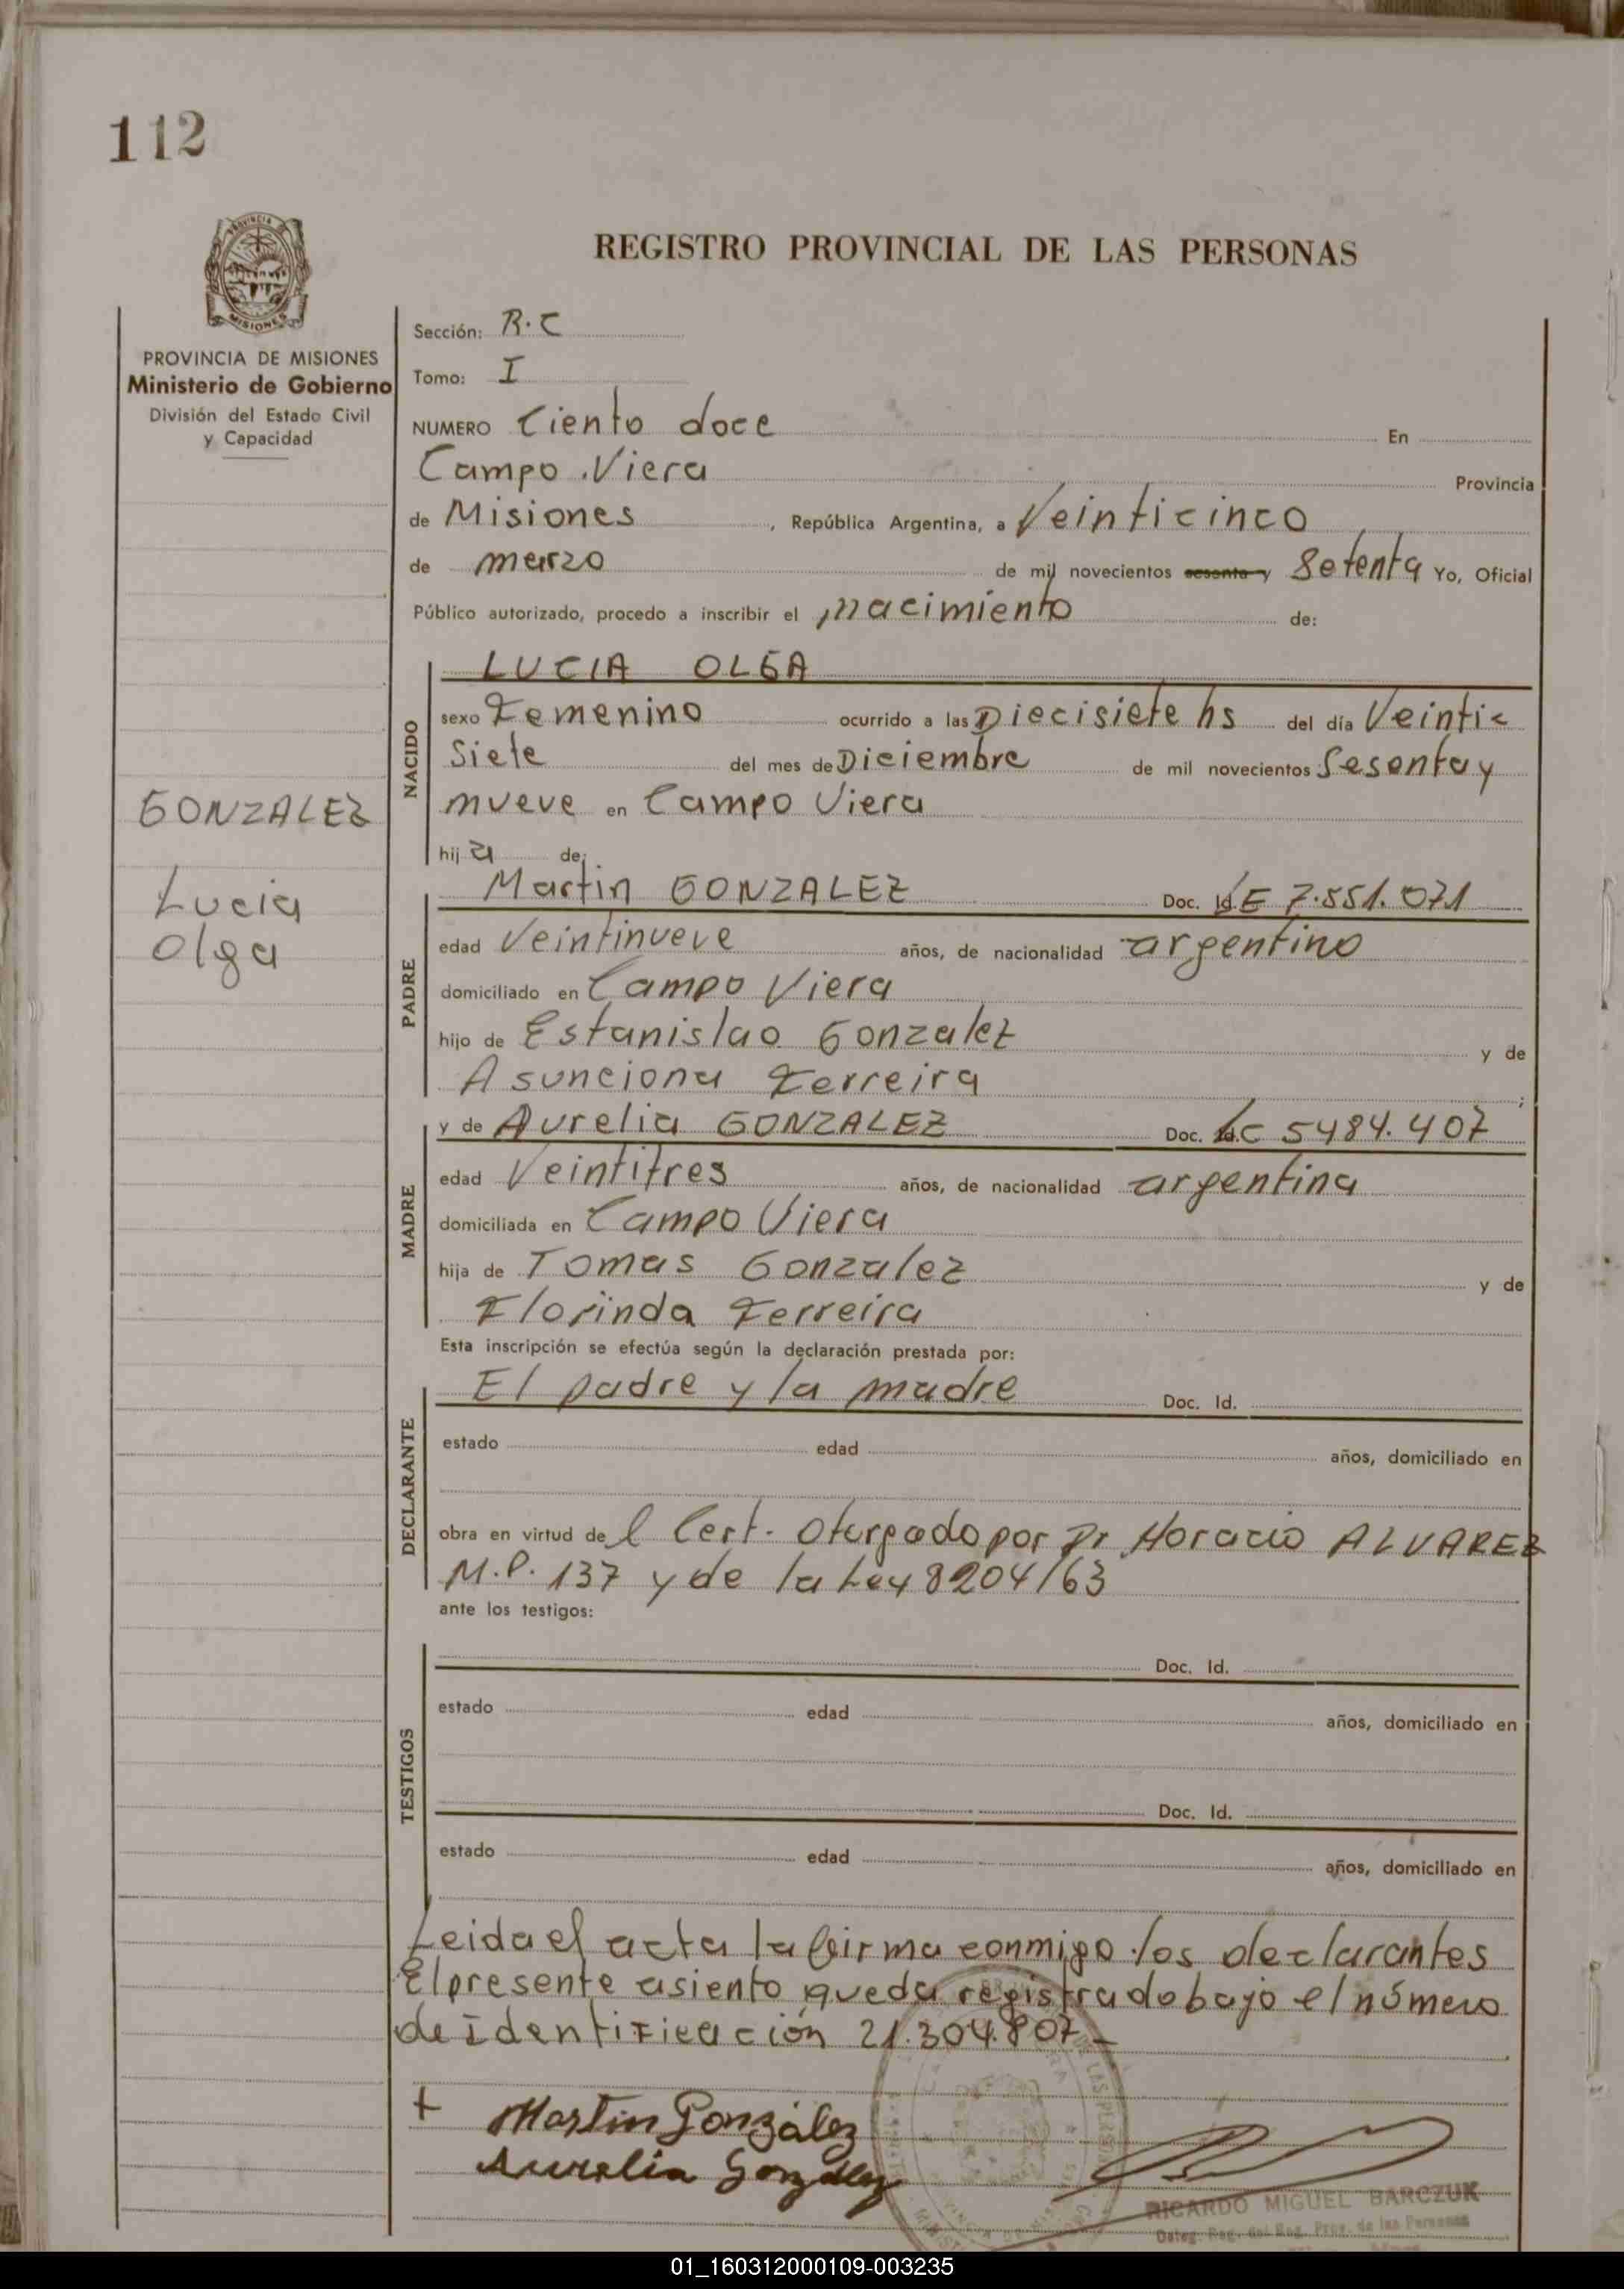 112
PROVINCIA DE
MISIONES
PROVINCIA DE MISIONES
Ministerio de Gobierno
División del Estado Civil
y Capacidad
GONZALEZ
Lucia
Olga
REGISTRO PROVINCIAL DE LAS PERSONAS
Sección: R.C
Tomo: I
NUMERO Ciento doce En
Campo Viera Provincia
de Misiones, República Argentina, a Veinticinco
de marzo de mil novecientos sesenta y Setenta Yo, Oficial
Público autorizado, procedo a inscribir el nacimiento de:
NACIDO
LUCIA OLGA
sexo Femenino ocurrido a las Diecisiete hs del día Veinti-
Siete del mes de Diciembre de mil novecientos Sesenta y
nueve en Campo Viera
hija de:
PADRE
Martin GONZALEZ Doc. Id. LE 7.551.071
edad Veintinueve años, de nacionalidad argentino
domiciliado en Campo Viera
hijo de Estanislao Gonzalez y de
Asunciona Ferreira;
MADRE
y de Aurelia GONZALEZ Doc. Id. LC 5484.407
edad Veintitres años, de nacionalidad argentina
domiciliada en Campo Viera
hija de Tomas Gonzalez y de
Florinda Ferreira
Esta inscripción se efectúa según la declaración prestada por:
DECLARANTE
El padre y la madre Doc. Id.
estado edad años, domiciliado en
obra en virtud del Cert. otorgado por Dr Horacio ALVAREZ
M.P. 137 y de la Ley 8204/63
ante los testigos:
TESTIGOS
Doc. Id.
estado edad años, domiciliado en
Doc. Id.
estado edad años, domiciliado en
Leida el acta la firma conmigo los declarantes
El presente asiento queda registrado bajo el número
de identificación 21.304.807-
+ Martin González
Aurelia González
RICARDO MIGUEL BARCZUK
Deleg. Reg. del Reg. Prov. de las Personas
01_160312000109-003235